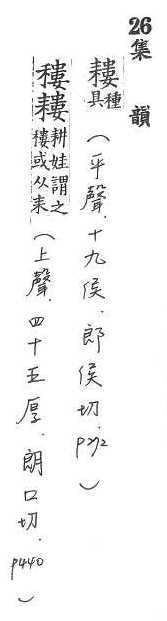 26集韻
耬種具(平聲.十九侯.郎侯切.p272)
穫耬耕娃謂之穫或从耒(上聲.四十五厚.朗口切.p440)